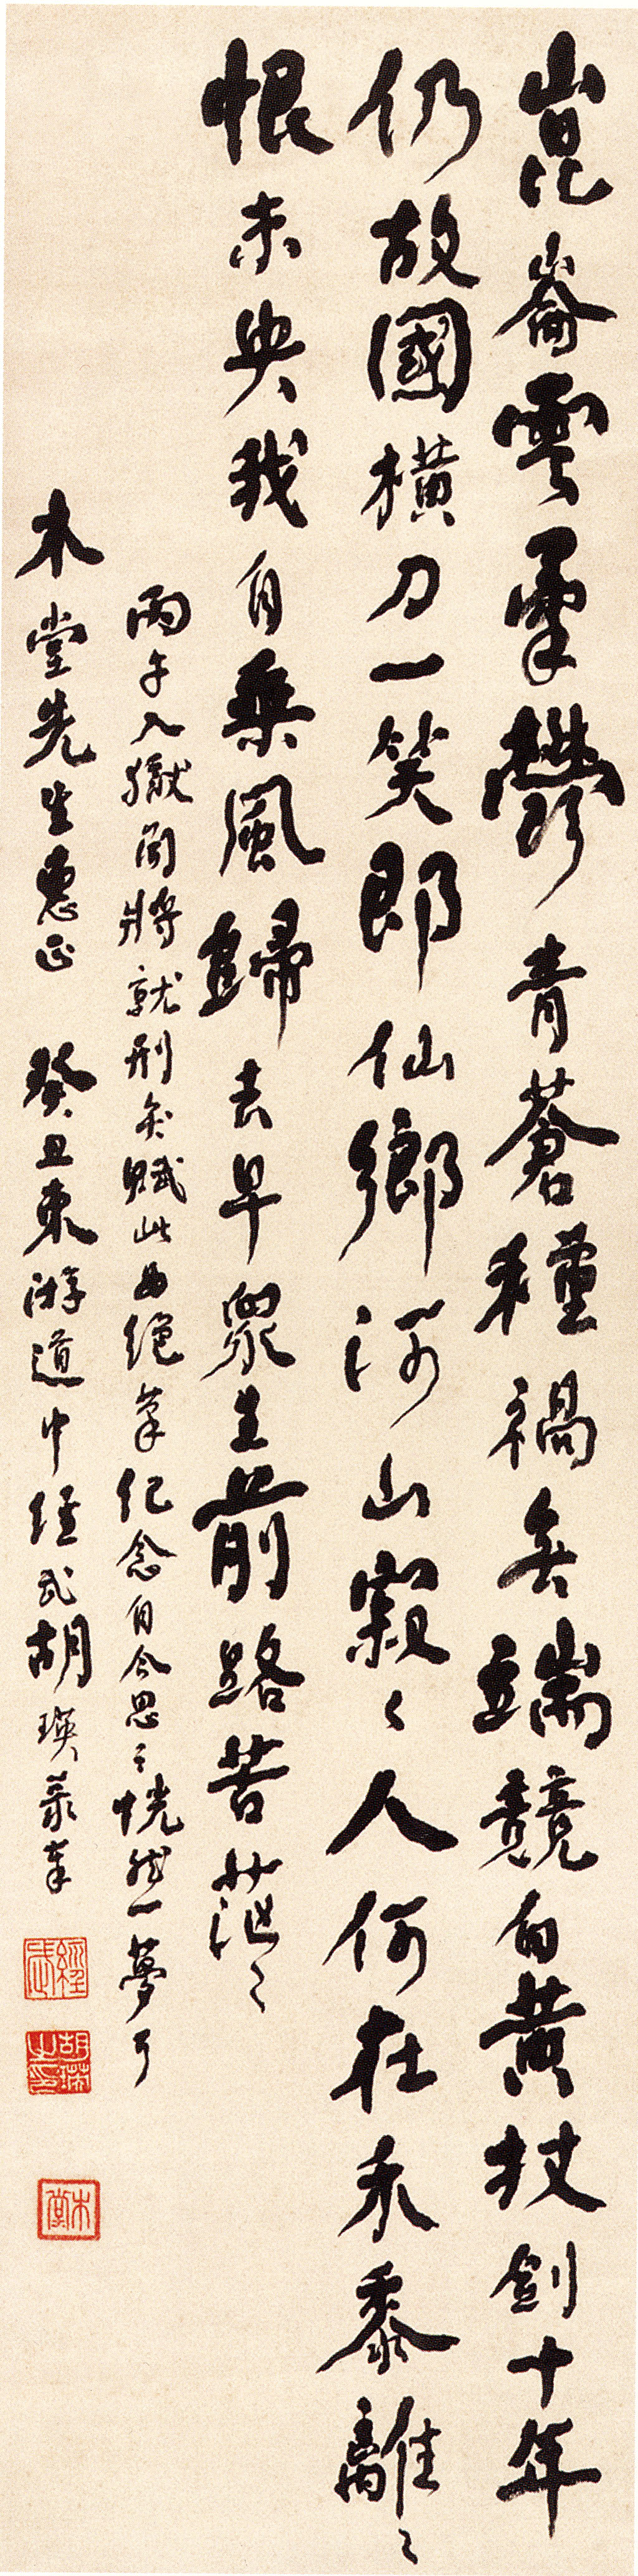 崑崙雲氣鬱青蒼種禍無端競白黃杖劍十年
仍故國橫刀一笑即仙鄉河山寂々人何在禾黍離々
恨未央我自乘風歸去早眾生前路苦茫々
丙午入獄聞將就刑矣賦此為絕筆紀念自今思之恍然一夢耳
木堂先生惠正 癸丑東游道中經武胡瑛錄奉
經武
胡瑛之印
木堂